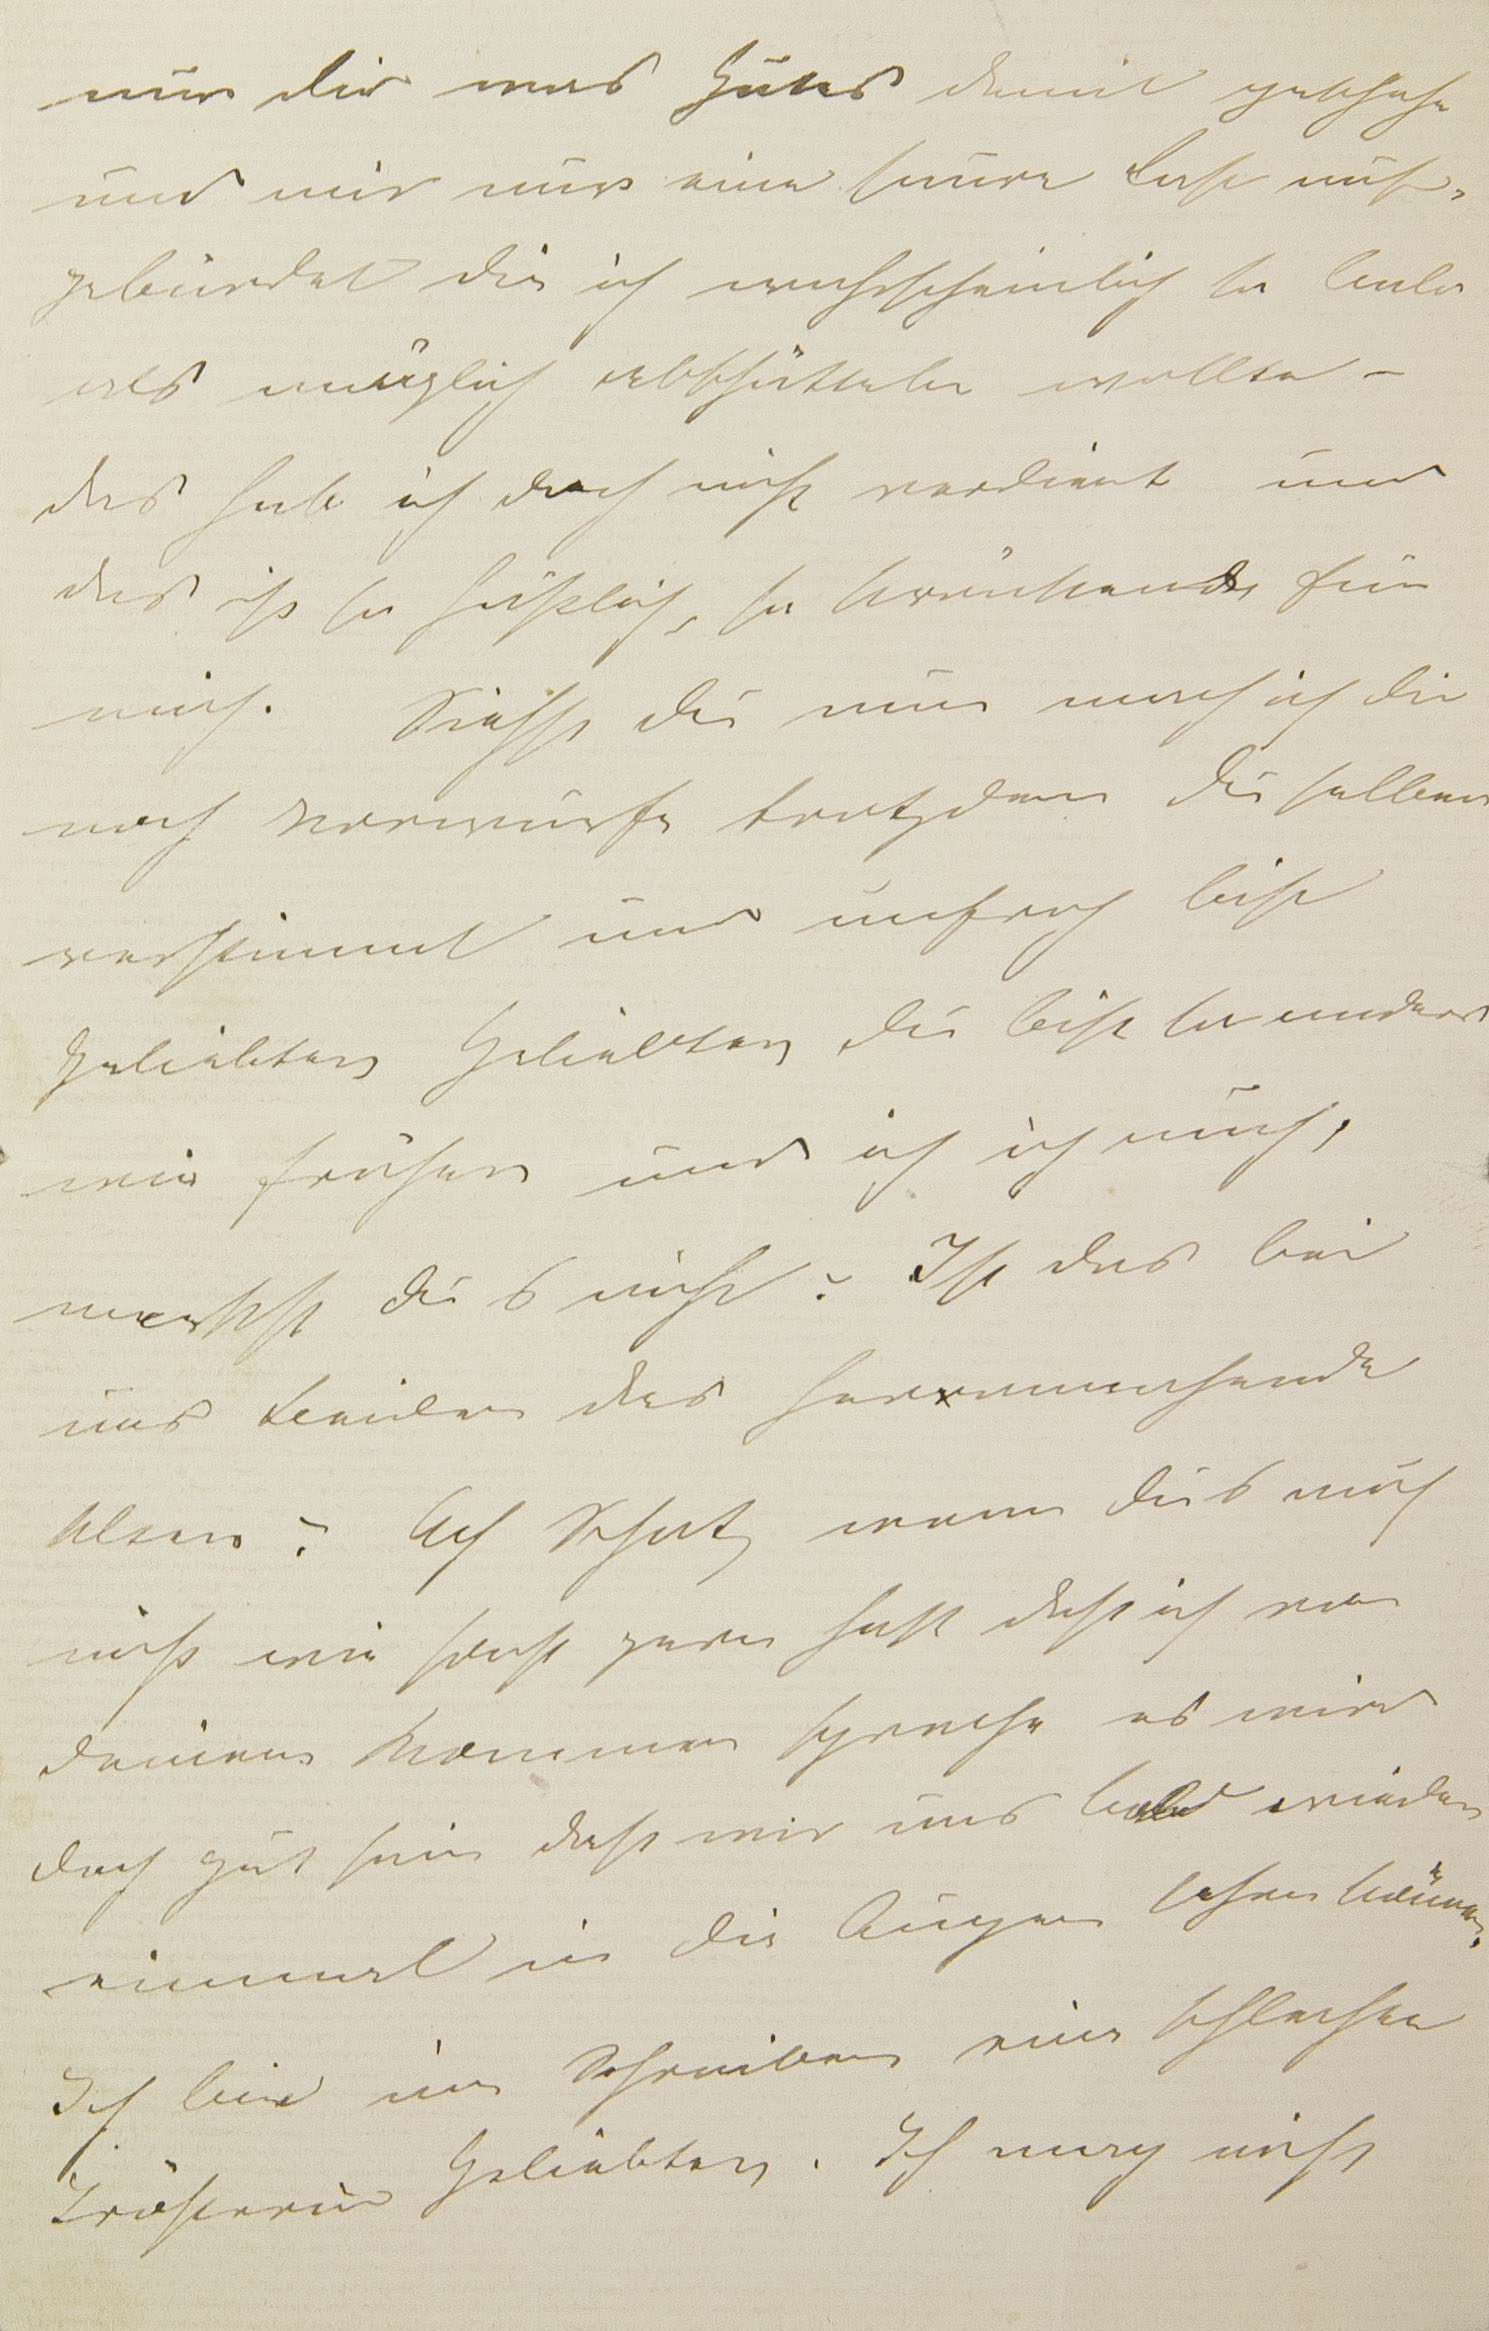 nur dir was Gutes damit geschehe
und mir nur eine saure Last auf-
gebürdet die ich wahrscheinlich so bald
als möglich abschütteln wollte –
das hab ich doch nicht verdient und
das ist so häßlich, so kränkend für
mich. Siehst du nun mach ich dir
noch Vorwürfe trotzdem du selber
verstimmt und unfroh bist
Geliebter, Geliebter, du bist so anders
wie früher und ich ich auch,
merkst du's nicht? Ist das bei
uns beiden das herannahende
Alter? Ach Schatz wenn du's auch
nicht wie sonst gern hast daß ich von
deinem Kommen spreche es wird
doch gut sein daß wir uns bald wieder
einmal in die Augen sehen können.
Ich bin im Schreiben eine schlechte
Trösterin Geliebter. Ich mag nicht